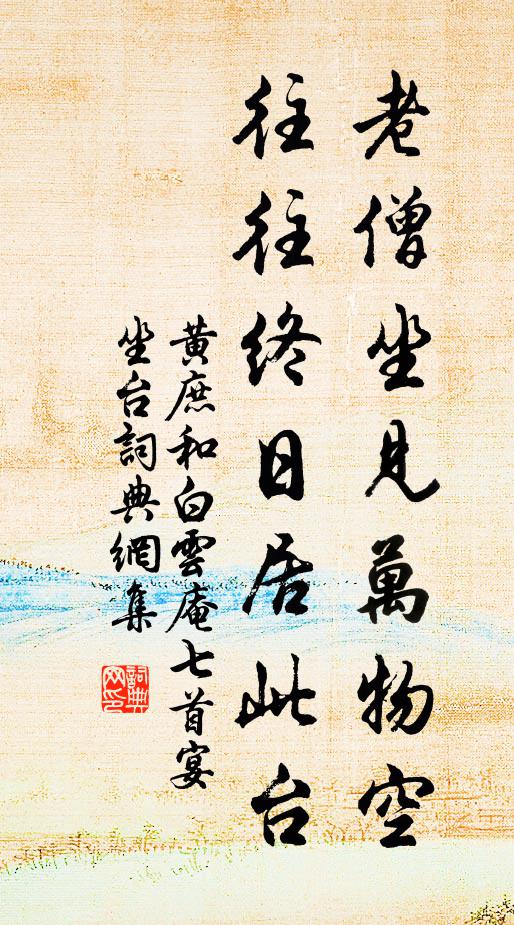 老僧坐見萬物空
往往終日居此台
黃庶和白雲庵七首宴
坐台詞典網集
詞典
网印